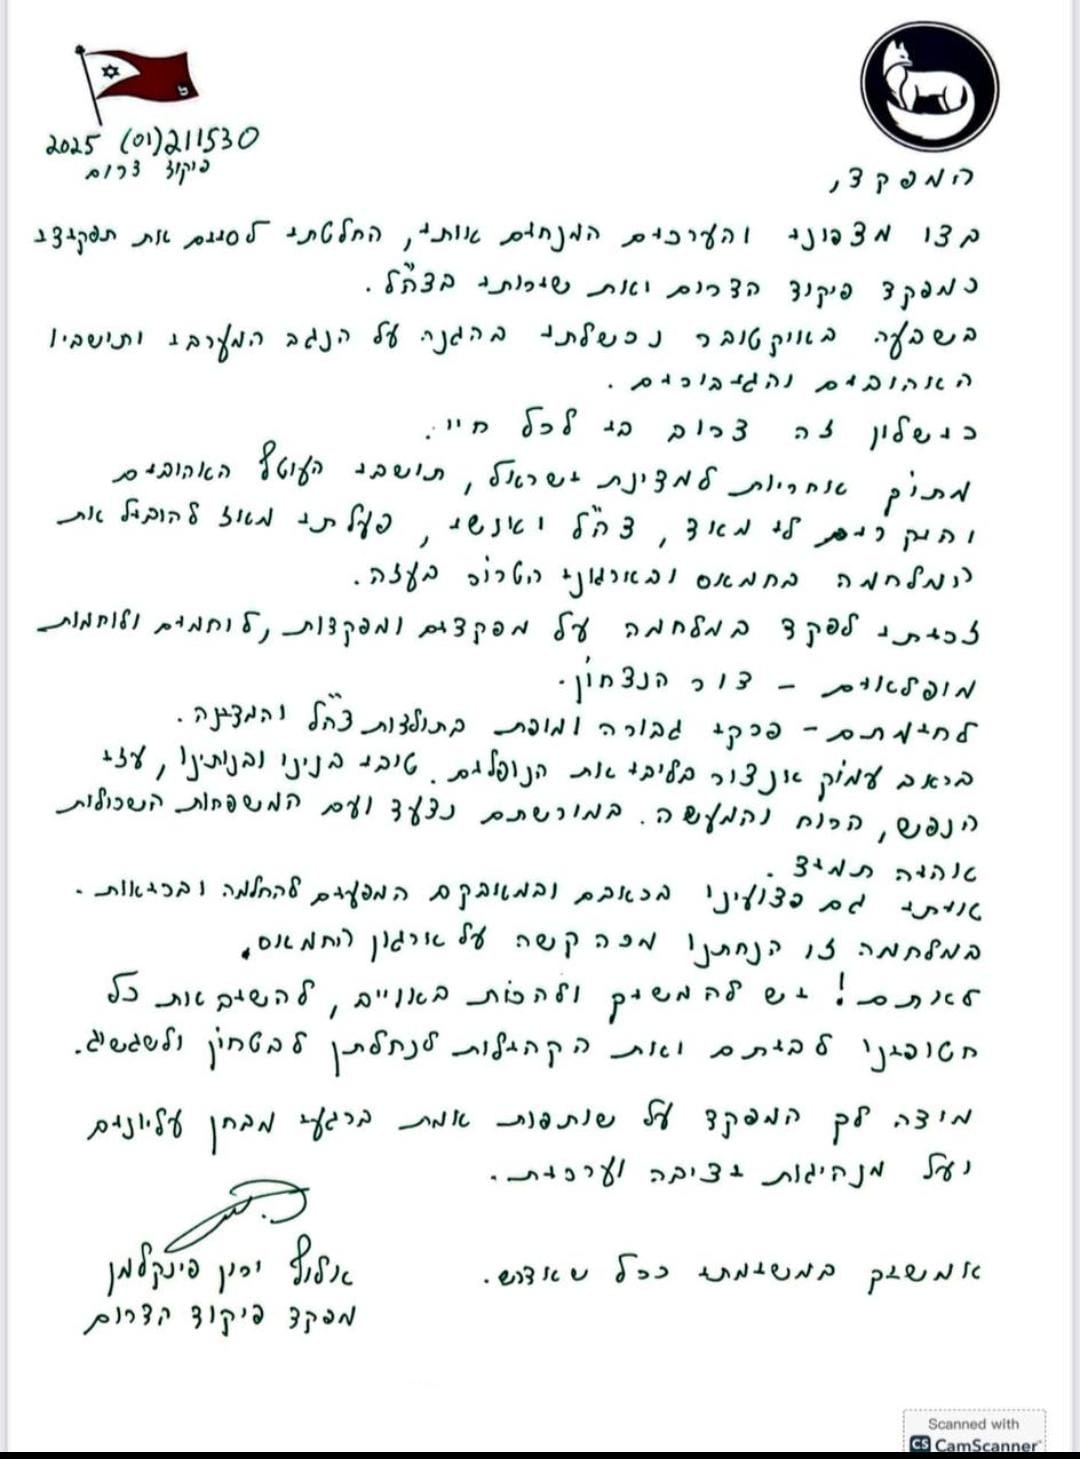 211530(01) 2025
פיקוד דרום
המפקד,
בצו מצפוני והערכים המנחים אותי, החלטתי לסיים את תפקידי
כמפקד פיקוד הדרום ואת שירותי בצה"ל.
בשבעה באוקטובר נכשלתי בהגנה על הנגב המערבי ותושביו
האהובים והגיבורים.
כישלון זה צרוב בי לכל חיי.
מתוך אחריות למדינת ישראל, תושבי העוטף האהובים
והיקרים לי מאד, צה"ל ואנשי, פעלתי מאז להוביל את
המלחמה בחמאס ובארגוני הטרור בעזה.
זכיתי לפקד במלחמה על מפקדים ומפקדות, לוחמים ולוחמות
מופלאים - דור הנצחון.
לחימתם - פרקי גבורה ומופת בתולדות צה"ל והמדינה.
בכאב עמוק אנצור בליבי את הנופלים. טובי בנינו ובנותינו, עזי
הנפש, הרוח והמעשה. במורשתם נצעד ועם המשפחות השכולות
אהיה תמיד.
איתי גם פצועינו בכאבם ובמאבקם המפעים להחלמה ובריאות.
במלחמה זו הנחתנו מכה קשה על ארגון החמאס.
לא תם! יש להמשיך ולהכות באויים, להשיב את כל
חטופינו לביתם ואת הקהילות לנחלתן לבטחון ולשגשוג.
מודה לך המפקד על שותפות אמת ברגעי מבחן עליונים
ועל מנהיגות יציבה וערכית.
אמשיך במשימתי ככל שאדרש.
אלוף ירון פינקלמן
מפקד פיקוד הדרום
Scanned with
CS CamScanner